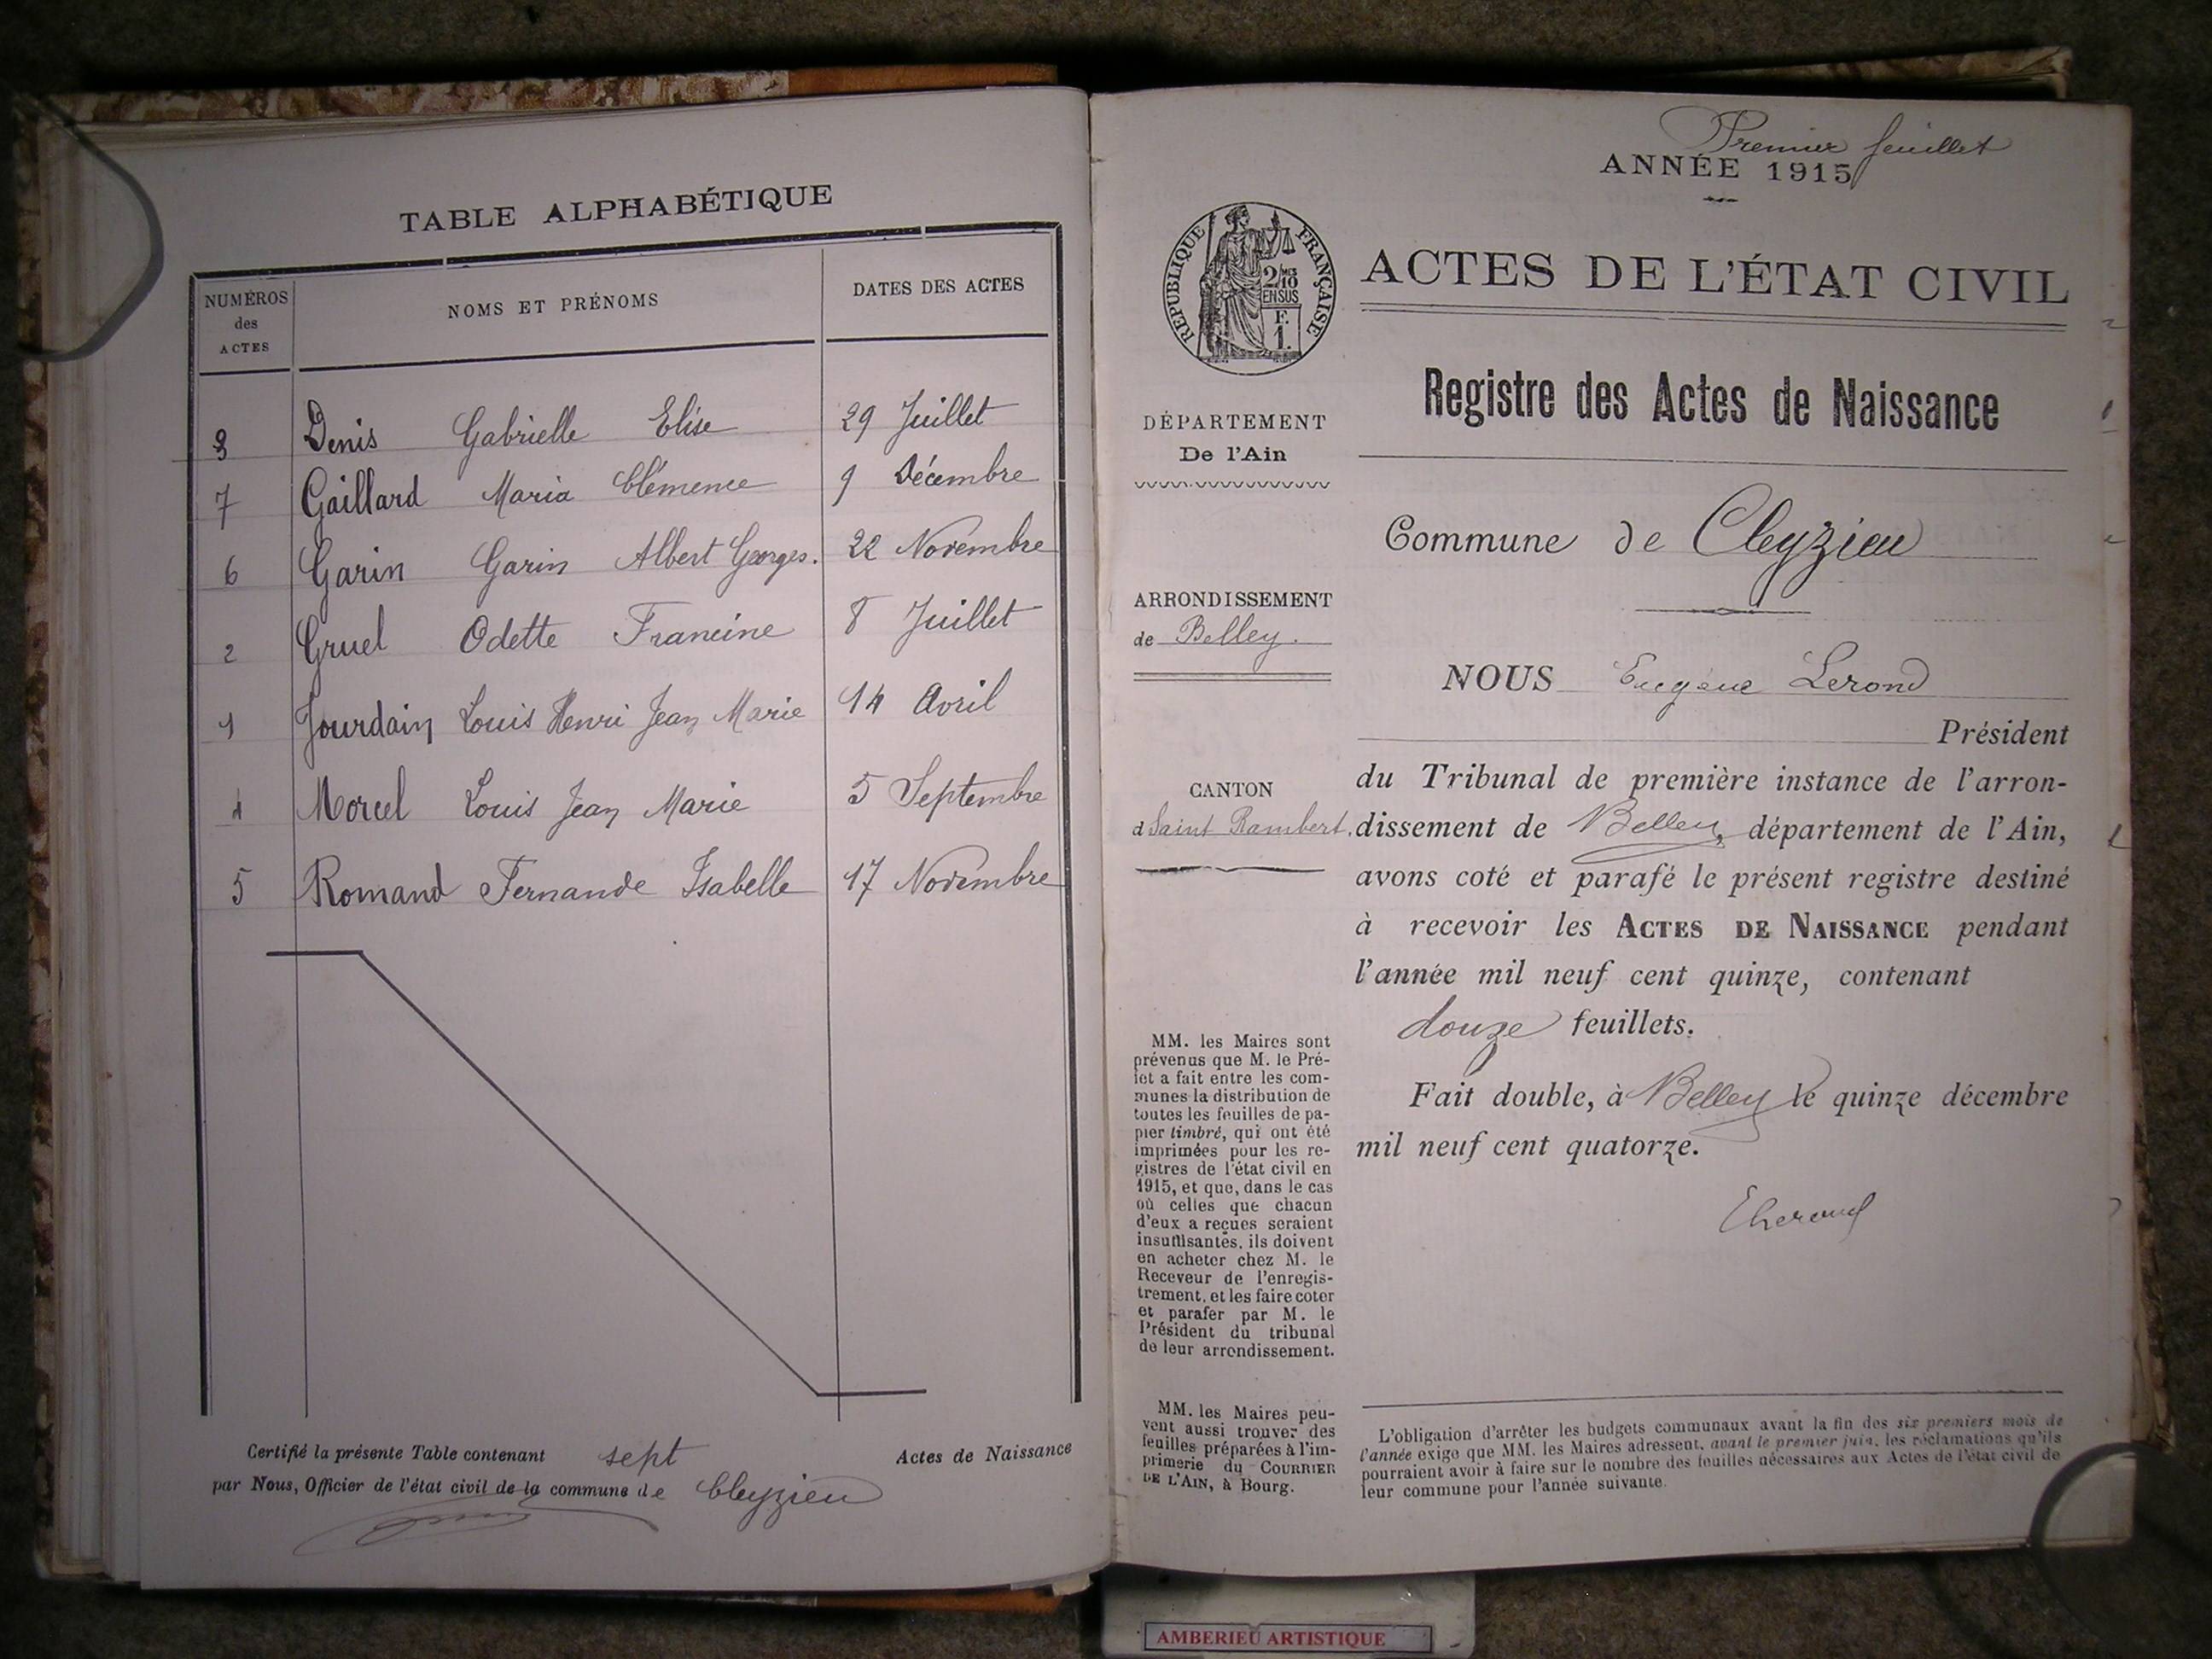 TABLE ALPHABÉTIQUE
NUMÉROS des ACTES
NOMS ET PRÉNOMS
DATES DES ACTES
3 Denis Gabrielle Elise 29 Juillet
7 Gaillard Maria Clémence 9 Décembre
6 Garin Garin Albert Georges. 22 Novembre
2 Gruel Odette Francine 8 Juillet
1 Jourdain Louis Henri Jean Marie 14 Avril
4 Morcel Louis Jean Marie 5 Septembre
5 Romand Fernande Isabelle 17 Novembre
Certifié la présente Table contenant sept Actes de Naissance
par Nous, Officier de l'état civil de la commune de Cleyzieu
Premier feuillet
ANNÉE 1915
RÉPUBLIQUE FRANÇAISE
2/10 MES
EN SUS
F.
1.
ACTES DE L'ÉTAT CIVIL
Registre des Actes de Naissance
DÉPARTEMENT
De l'Ain
Commune de Cleyzieu
ARRONDISSEMENT
de Belley.
NOUS Eugène Lerond
Président
CANTON
d Saint Rambert.
du Tribunal de première instance de l'arron-
dissement de Belley, département de l'Ain,
avons coté et parafé le présent registre destiné
à recevoir les ACTES DE NAISSANCE pendant
l'année mil neuf cent quinze, contenant
douze feuillets.
Fait double, à Belley le quinze décembre
mil neuf cent quatorze.
MM. les Maires sont
prévenus que M. le Pré-
fet a fait entre les com-
munes la distribution de
toutes les feuilles de pa-
pier timbré, qui ont été
imprimées pour les re-
gistres de l'état civil en
1915, et que, dans le cas
où celles que chacun
d'eux a reçues seraient
insuffisantes, ils doivent
en acheter chez M. le
Receveur de l'enregis-
trement, et les faire coter
et parafer par M. le
Président du tribunal
de leur arrondissement.
MM. les Maires peu-
vent aussi trouver des
feuilles préparées à l'im-
primerie du COURRIER
DE L'AIN, à Bourg.
L'obligation d'arrêter les budgets communaux avant la fin des six premiers mois de
l'année exige que MM. les Maires adressent, avant le premier juin, les réclamations qu'ils
pourraient avoir à faire sur le nombre des feuilles nécessaires aux Actes de l'état civil de
leur commune pour l'année suivante.
AMBERIEU ARTISTIQUE